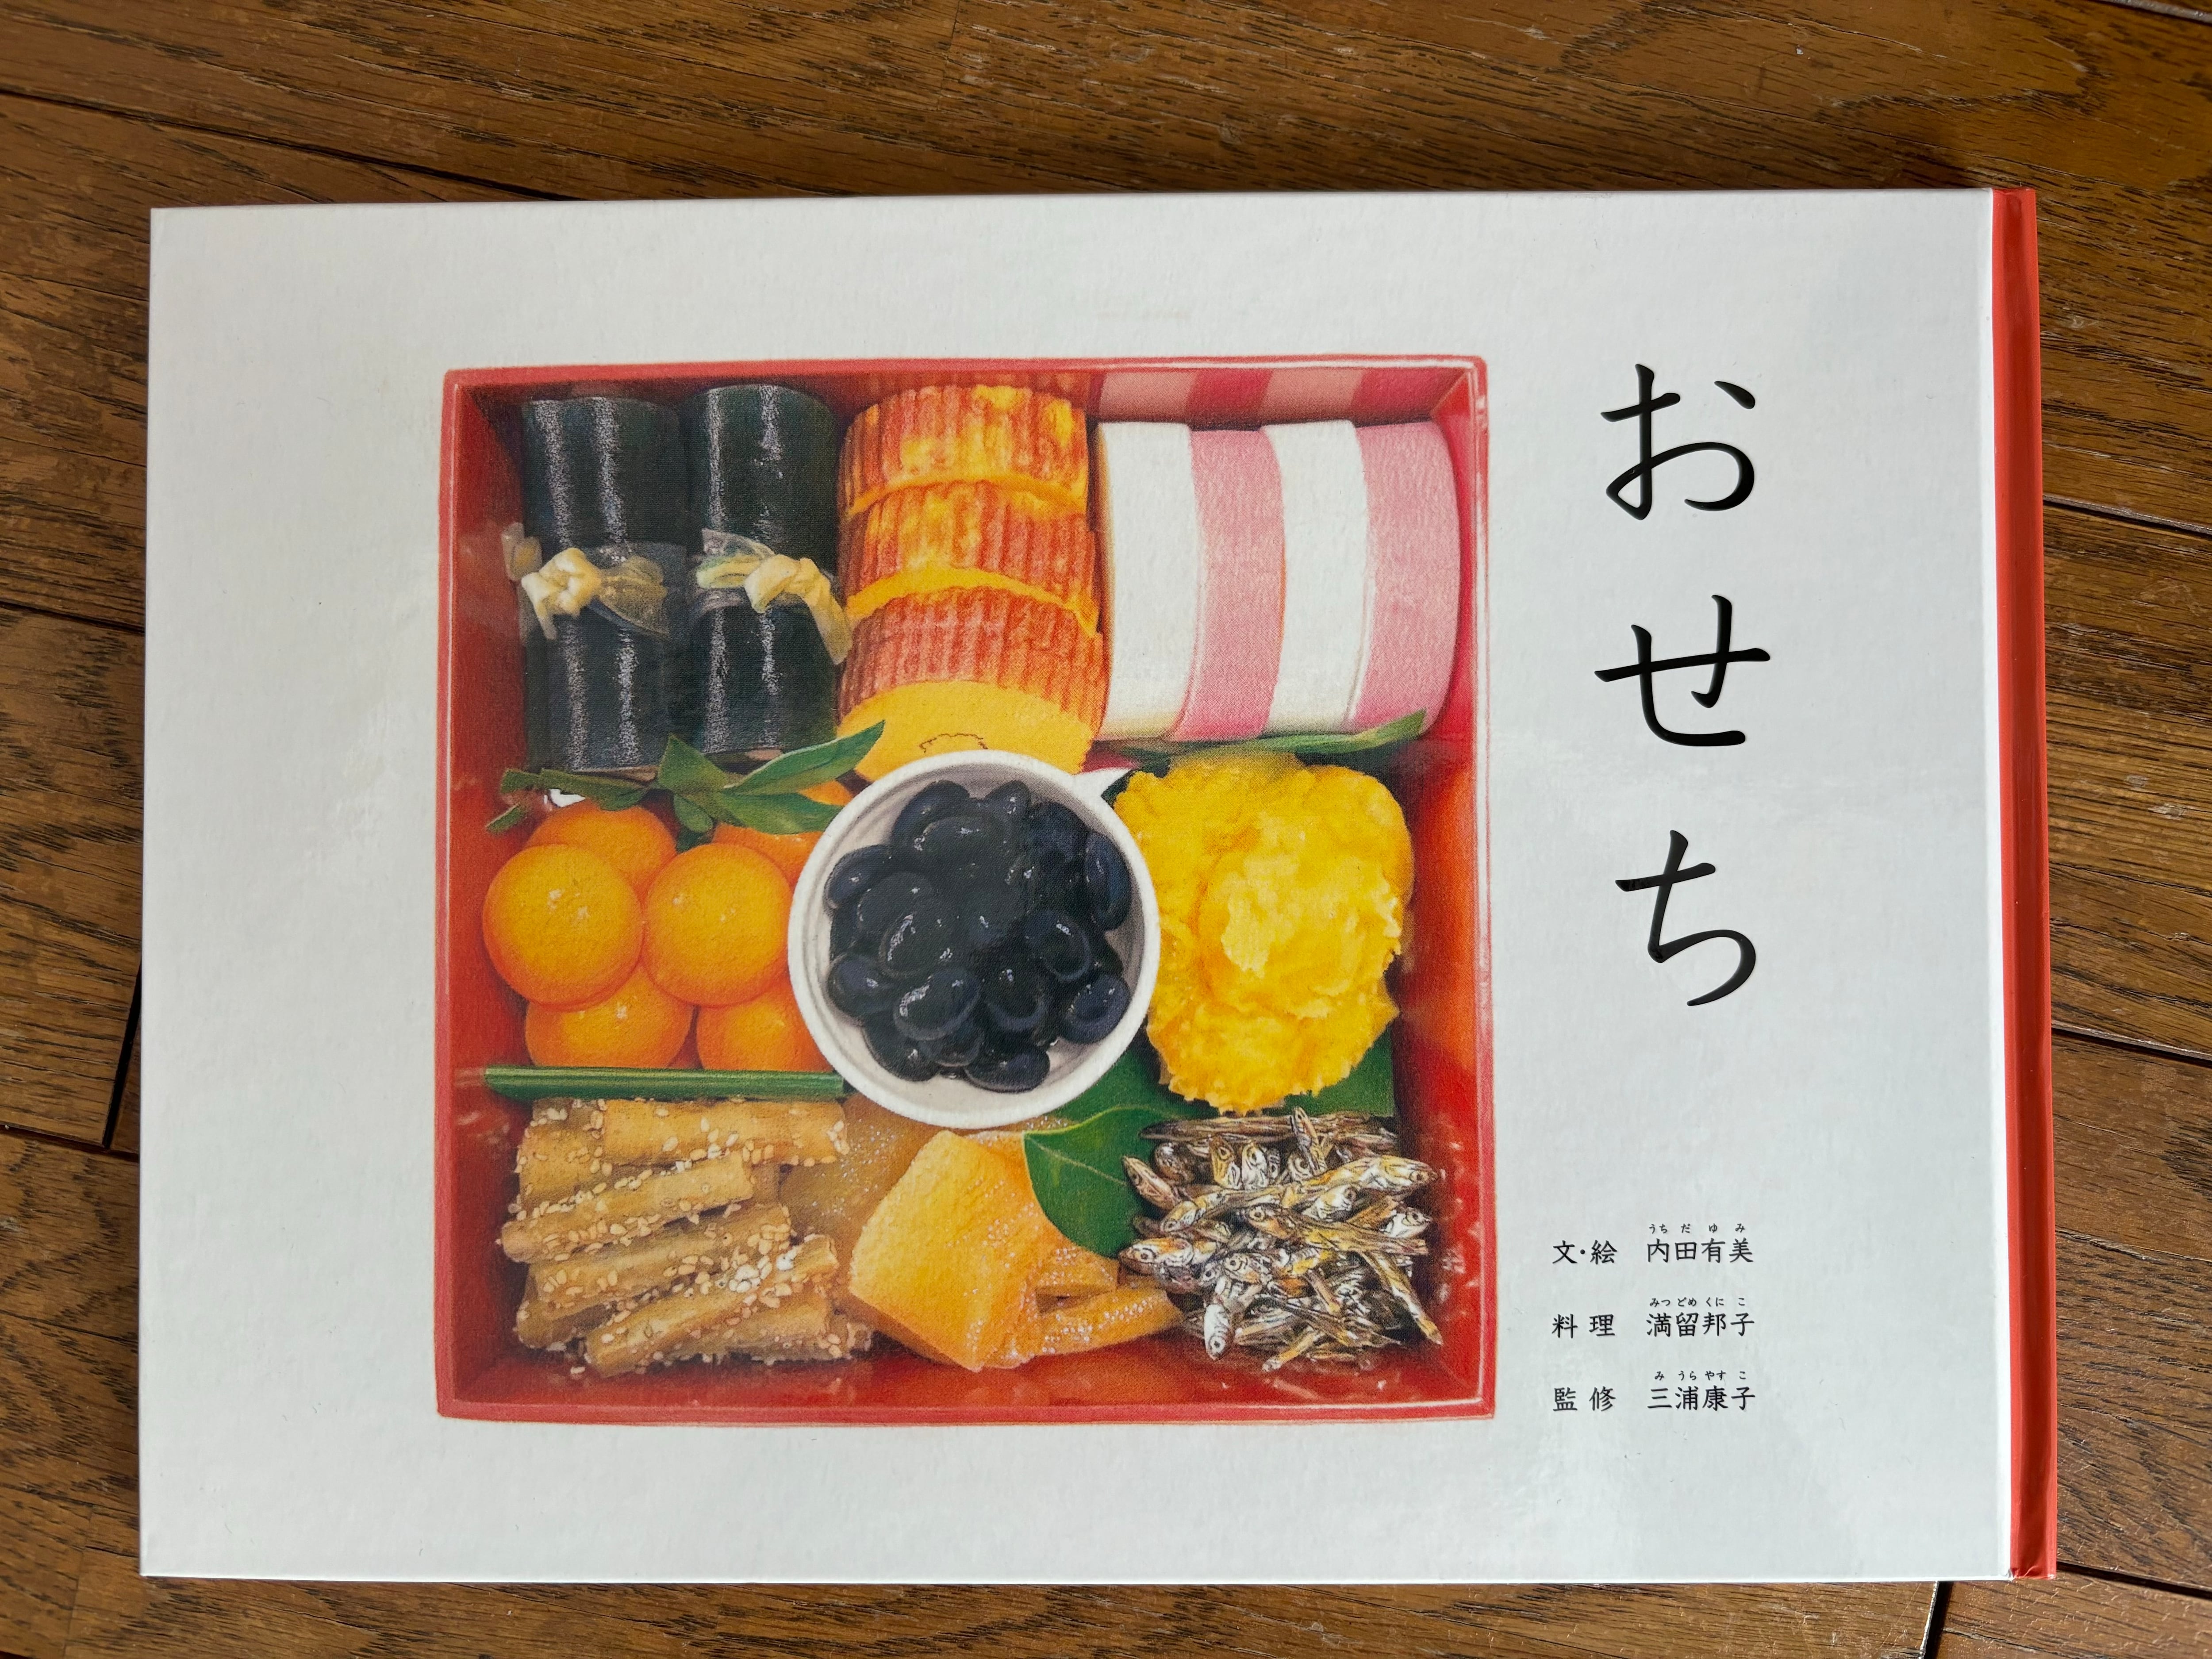 おせち
文・絵 内田有美
うちだゆみ
料理 満留邦子
みつどめくにこ
監修 三浦康子
みうらやすこ